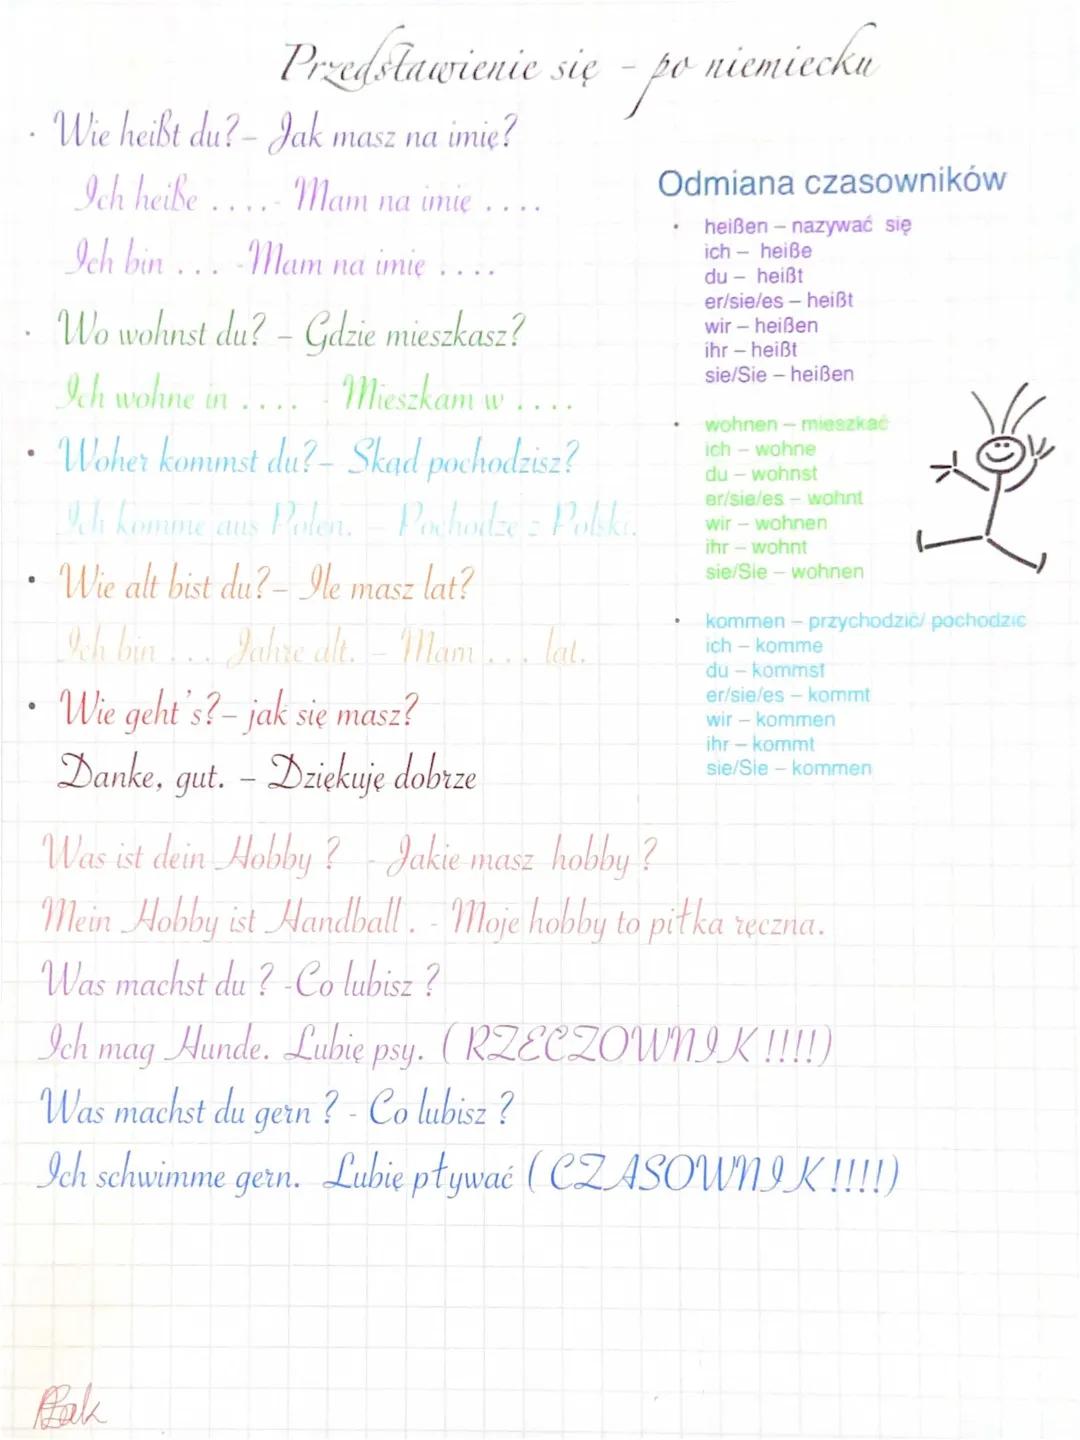 Przedstawienie się - po niemiecku
· Wie heißt du? – Jak masz na imię?
Ich heiße .... - Mam na imię ....
Ich bin ... - Mam na imię ....
· Wo wohnst du? – Gdzie mieszkasz?
Ich wohne in .... - Mieszkam w ....
· Woher kommst du? – Skąd pochodzisz?
Ich komme aus Polen. – Pochodzę z Polski.
· Wie alt bist du? – Ile masz lat?
Ich bin ... Jahre alt. – Mam ... lat.
· Wie geht's? – jak się masz?
Danke, gut. – Dziękuję dobrze
Was ist dein Hobby ? - Jakie masz hobby ?
Mein Hobby ist Handball . - Moje hobby to piłka ręczna.
Was machst du ? - Co lubisz ?
Ich mag Hunde. Lubię psy. ( RZECZOWNIK !!!!)
Was machst du gern ? - Co lubisz ?
Ich schwimme gern. Lubię pływać ( CZASOWNIK !!!!)
Odmiana czasowników
· heißen – nazywać się
ich – heiße
du – heißt
er/sie/es – heißt
wir – heißen
ihr – heißt
sie/Sie – heißen
· wohnen – mieszkać
ich – wohne
du – wohnst
er/sie/es – wohnt
wir – wohnen
ihr – wohnt
sie/Sie – wohnen
· kommen – przychodzić/ pochodzić
ich – komme
du – kommst
er/sie/es – kommt
wir – kommen
ihr – kommt
sie/Sie – kommen